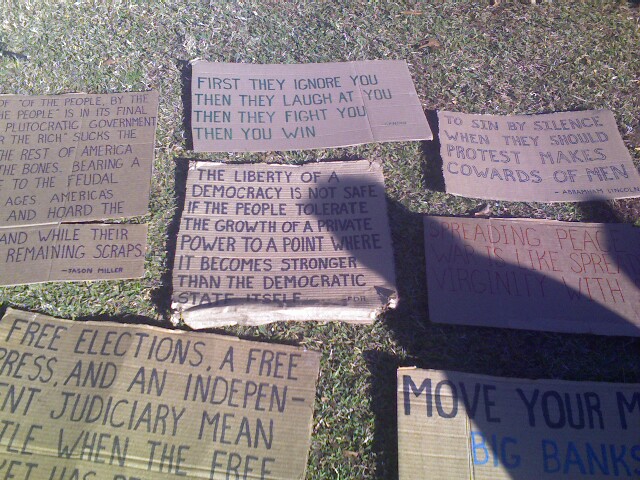 FIRST THEY IGNORE YOU
THEN THEY LAUGH AT YOU
THEN THEY FIGHT YOU
THEN YOU WIN
OF "OF THE PEOPLE, BY THE
THE PEOPLE" IS IN ITS FINAL
PLUTOCRATIC GOVERNMENT
THE RICH" SUCKS THE
THE REST OF AMERICA
THE BONES. BEARING A
TO THE FEUDAL
AGES AMERICAS
AND HOARD THE
AND WHILE THEIR
REMAINING SCRAPS
-JASON MILLER
TO SIN BY SILENCE
WHEN THEY SHOULD
PROTEST MAKES
COWARDS OF MEN
-ABRAHAM LINCOLN
THE LIBERTY OF A
DEMOCRACY IS NOT SAFE
IF THE PEOPLE TOLERATE
THE GROWTH OF A PRIVATE
POWER TO A POINT WHERE
IT BECOMES STRONGER
THAN THE DEMOCRATIC
STATE ITSELF
-FDR
SPREADING PEACE
WAR IS LIKE
VIRGINITY WITH
FREE ELECTIONS, A FREE
PRESS, AND AN INDEPEN-
ENT JUDICIARY MEAN
TLE WHEN THE FREE
KET HAS
MOVE YOUR M
BIG BANKS